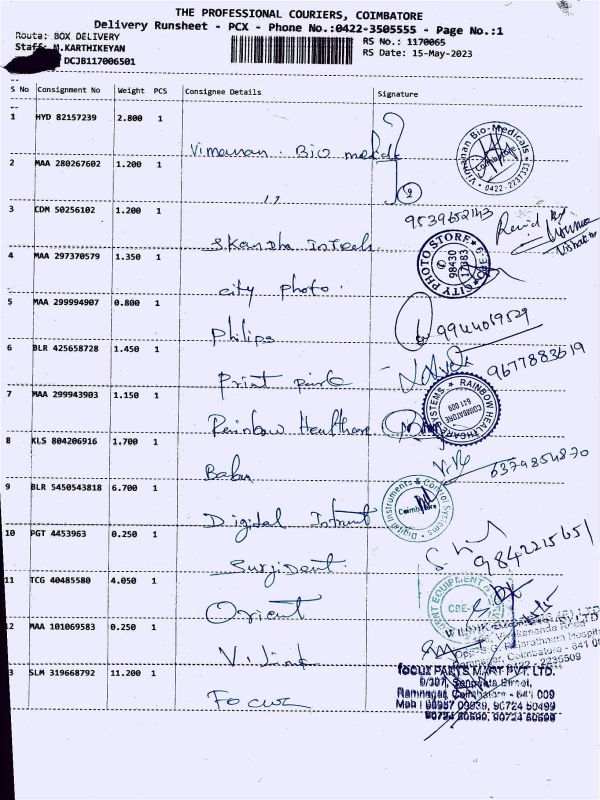 THE PROFESSIONAL COURIERS, COIMBATORE
Delivery Runsheet - PCX - Phone No.:0422-3505555 - Page No.:1
Route: BOX DELIVERY
RS No.: 1170065
Staff: M.KARTHIKEYAN
RS Date: 15-May-2023
DCJB117006501
S No Consignment No Weight PCS Consignee Details Signature
1 HYD 82157239 2.800 1
Vimanan Bio medi
Vimanan Bio-Medicals
Coimbatore
0422-2237333
2 MAA 280267602 1.200 1
,, 2
3 CDM 50256102 1.200 1
9539652143
Skansha Intech
4 MAA 297370579 1.350 1
city photo.
CITY PHOTO STORE
98430
17383
5 MAA 299994907 0.800 1
Philips
9944019529
6 BLR 425658728 1.450 1
Print park
9677883619
7 MAA 299943903 1.150 1
Rainbow Healthcare
RAINBOW HEALTHCARE SYSTEMS
COIMBATORE
641 009
8 KLS 804206916 1.700 1
Babu
6379854870
9 BLR 5450543818 6.700 1
Digital Intrument
Digital Instruments & Control Systems
Coimbatore
10 PGT 4453963 0.250 1
Surjident
9842215651
11 TCG 40485580 4.050 1
Orient
CBE-
12 MAA 101069583 0.250 1
V.Link
Vivekananda Road
Ramnagar, Coimbatore - 641 009
SLM 319668792 11.200 1
Focuz
focuz PARTS MART PVT. LTD.
Ramnagar, Coimbatore - 641 009
90724 60500, 90724 60600